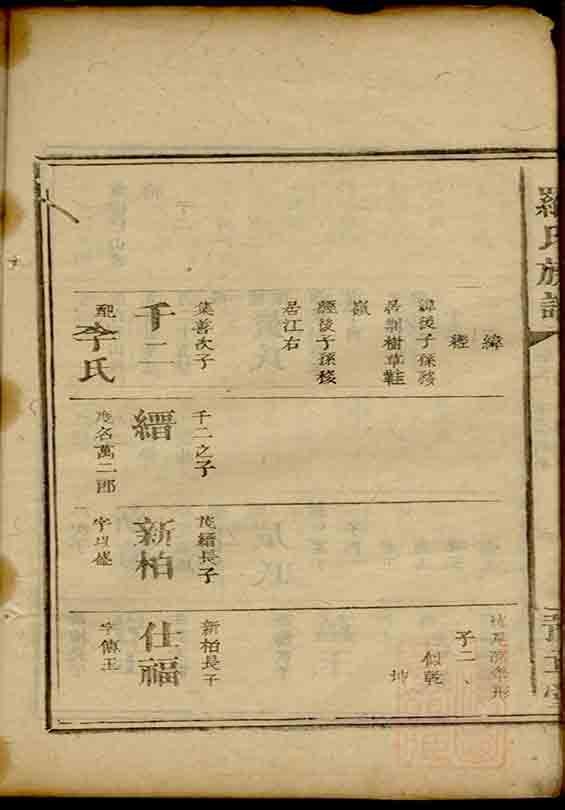 羅氏族譜
緯
經
緯後子孫發
居新樹草鞋
嶽
經後子孫發
居江右
葉善次子
千二
配李氏
千二之子
縉
度名萬二郎
茂縉長子
新柏
子二、
似乾
坤
新柏長子
仕福
字傅玉